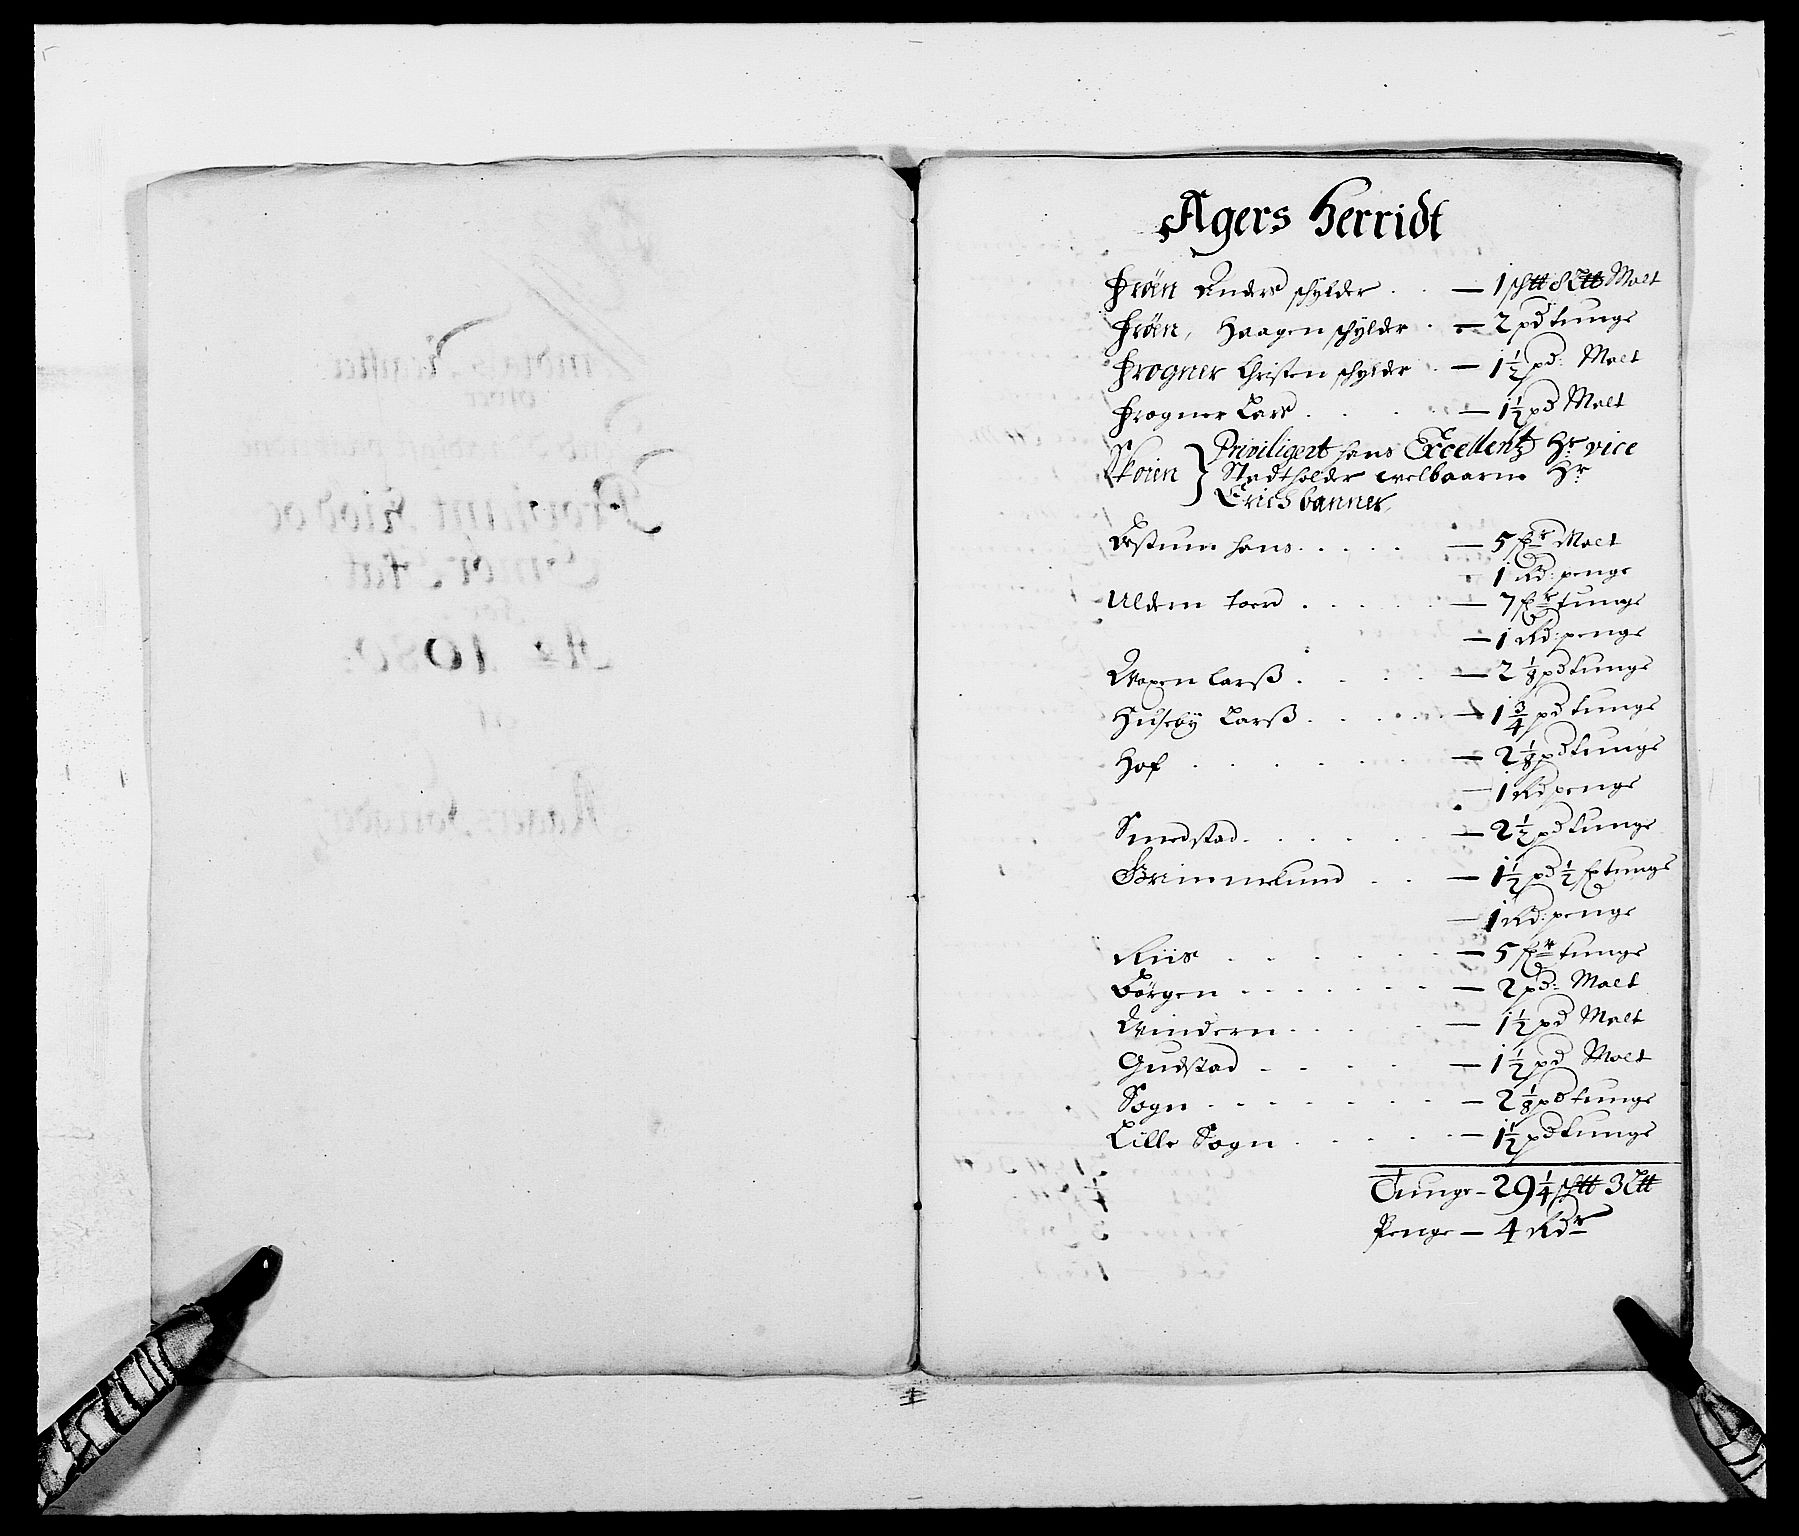 Agers Herridt
Frøen Anders schylder . . — 1 schtt 8 Ltt Malt
Frøen, Haagen schylder . — 2 pd tunge
Frogner Christen schylder . — 1½ pd: Malt
Frogner Lars . . . . — 1½ pd Malt
Skoien } Priviligert hans Excellentz Hr vice
Stadtholder welbaarne Hr
Erich banner
Bestum hans . . . . — 5 fr Malt
— 1 Rd: penge
Ullern toer . . . . — 7 fr tunge
— 1 Rd: penge
Woxen larss . . . . — 2⅛ pd tunge
Huseby Larss . . . . — 1¾ pd tunge
Hof . . . . . . — 2⅛ pd tunge
— 1 Rd penge
Smedstad . . . . . — 2½ pd tunge
Grimmelund . . . — 1½ pd ½ f tunge
— 1 Rd: penge
Riis . . . . . . — 5 fr tunge
Borgen . . . . . . — 2 pd: Malt
Windern . . . . . — 1½ pd Malt
Gudstad . . . . . — 1½ pd Malt
Sogn . . . . . . — 2⅛ pd tunge
Lille Sogn . . . . . — 1½ pd tunge
Tunge — 29¼ schtt 3 Ltt
Penge — 4 Rdr